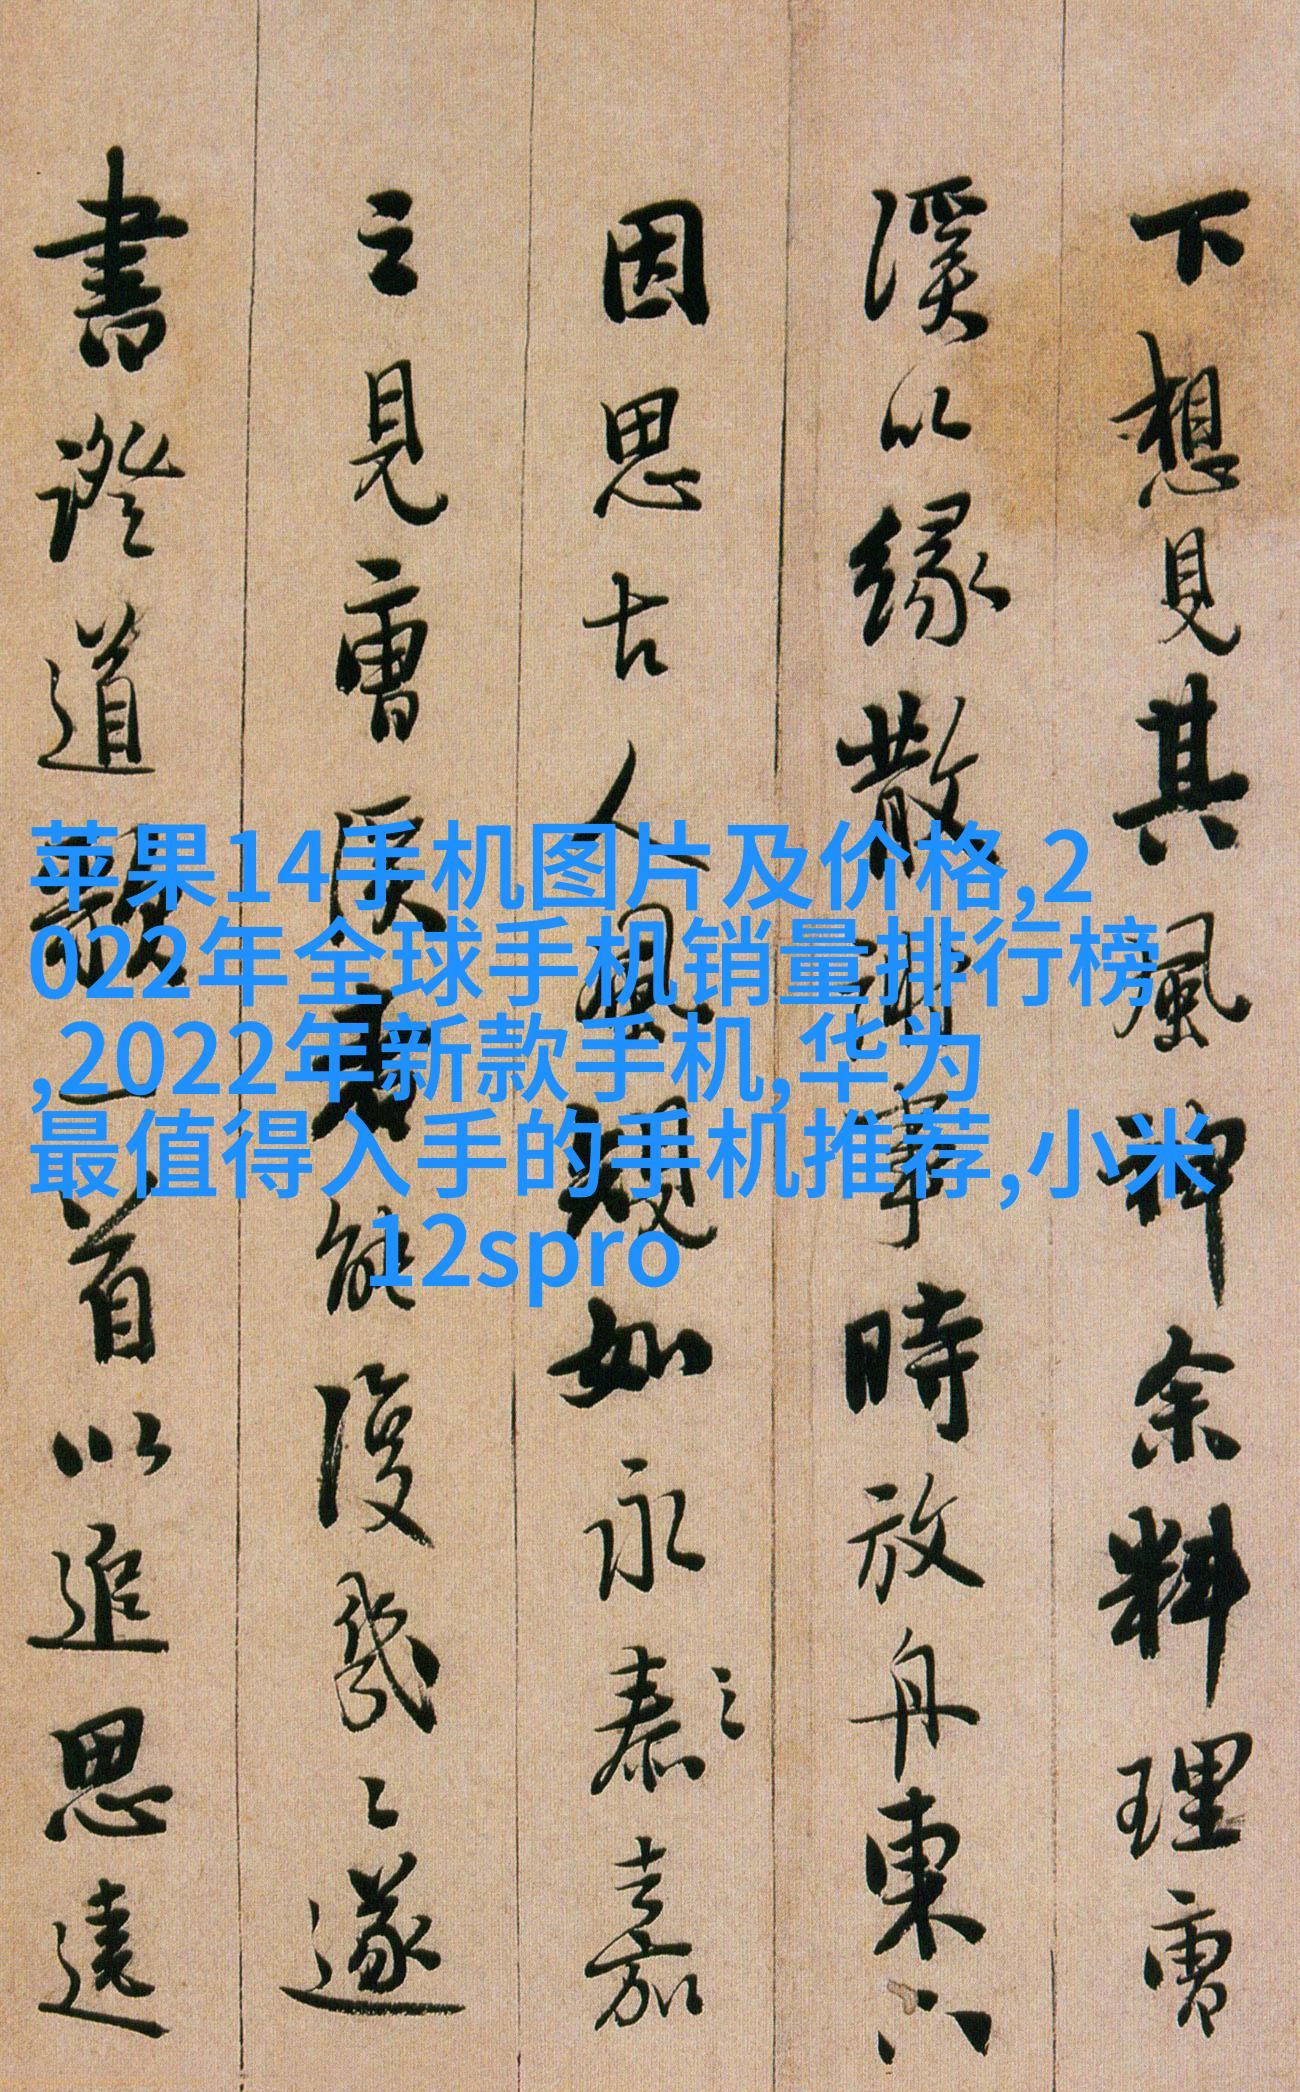 苹果14手机图片及价格,2
022年全球手机销量排行榜
,2022年新款手机,华为
最值得入手的手机推荐,小米
12spro
下想見其風神余料理曹
溪以緣散事時放舟東
因思古人風規如永泰之嘉
之見曹溪能復幾〻遂
書證道歌一首以追思遠